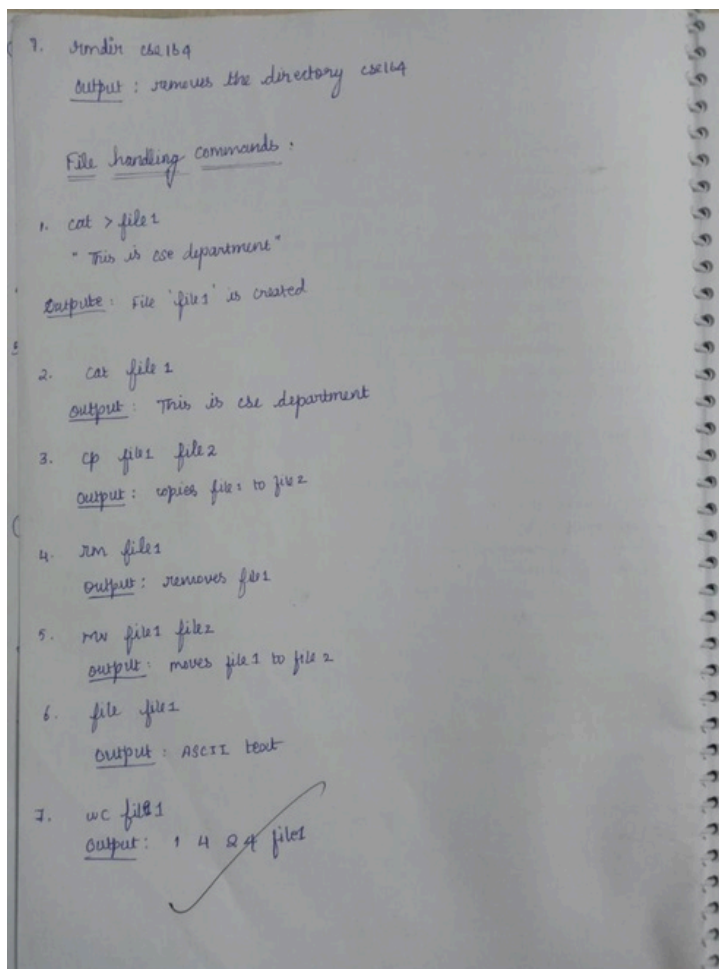 7. rmdir cse164
Output : removes the directory cse164
File handling commands :
1. cat > file1
" This is cse department "
Outpute : File 'file1' is created
2. cat file 1
output : This is cse department
3. cp file1 file2
output : copies file1 to file2
4. rm file1
output : removes file1
5. mv file1 file2
output : moves file1 to file 2
6. file file1
output : ASCII text
7. wc file1
output : 1 4 24 file1